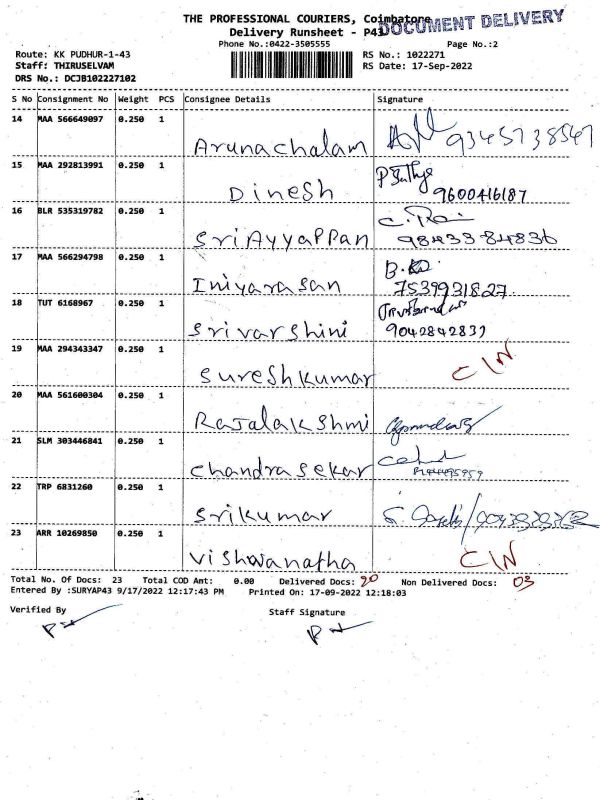 THE PROFESSIONAL COURIERS, Coimbatore
DOCUMENT DELIVERY
Delivery Runsheet - P43
Phone No.:0422-3505555 Page No.:2
Route: KK PUDHUR-1-43 RS No.: 1022271
Staff: THIRUSELVAM RS Date: 17-Sep-2022
DRS No.: DCJB102227102
S No Consignment No Weight PCS Consignee Details Signature
14 MAA 566649097 0.250 1 Arunachalam 9345738547
15 MAA 292813991 0.250 1 Dinesh 9600416187
16 BLR 535319782 0.250 1 SriAyyappan 9843384836
17 MAA 566294798 0.250 1 Iniyarasan 7539931827
18 TUT 6168967 0.250 1 Srivarshini 9042842839
19 MAA 294343347 0.250 1 Sureshkumar C/N
20 MAA 561600304 0.250 1 Rajalakshmi
21 SLM 303446841 0.250 1 Chandrasekar
22 TRP 6831260 0.250 1 Srikumar
23 ARR 10269850 0.250 1 Vishwanatha C/N
Total No. Of Docs: 23 Total COD Amt: 0.00 Delivered Docs: 20 Non Delivered Docs: 03
Entered By :SURYAP43 9/17/2022 12:17:43 PM Printed On: 17-09-2022 12:18:03
Verified By Staff Signature